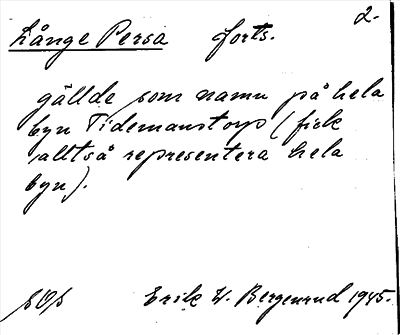 Långe Persa forts. 2.
gällde som namn på hela
byn Tidemanstorp (fick
alltså representera hela
byn).
Erik W. Bergenrud 1945.